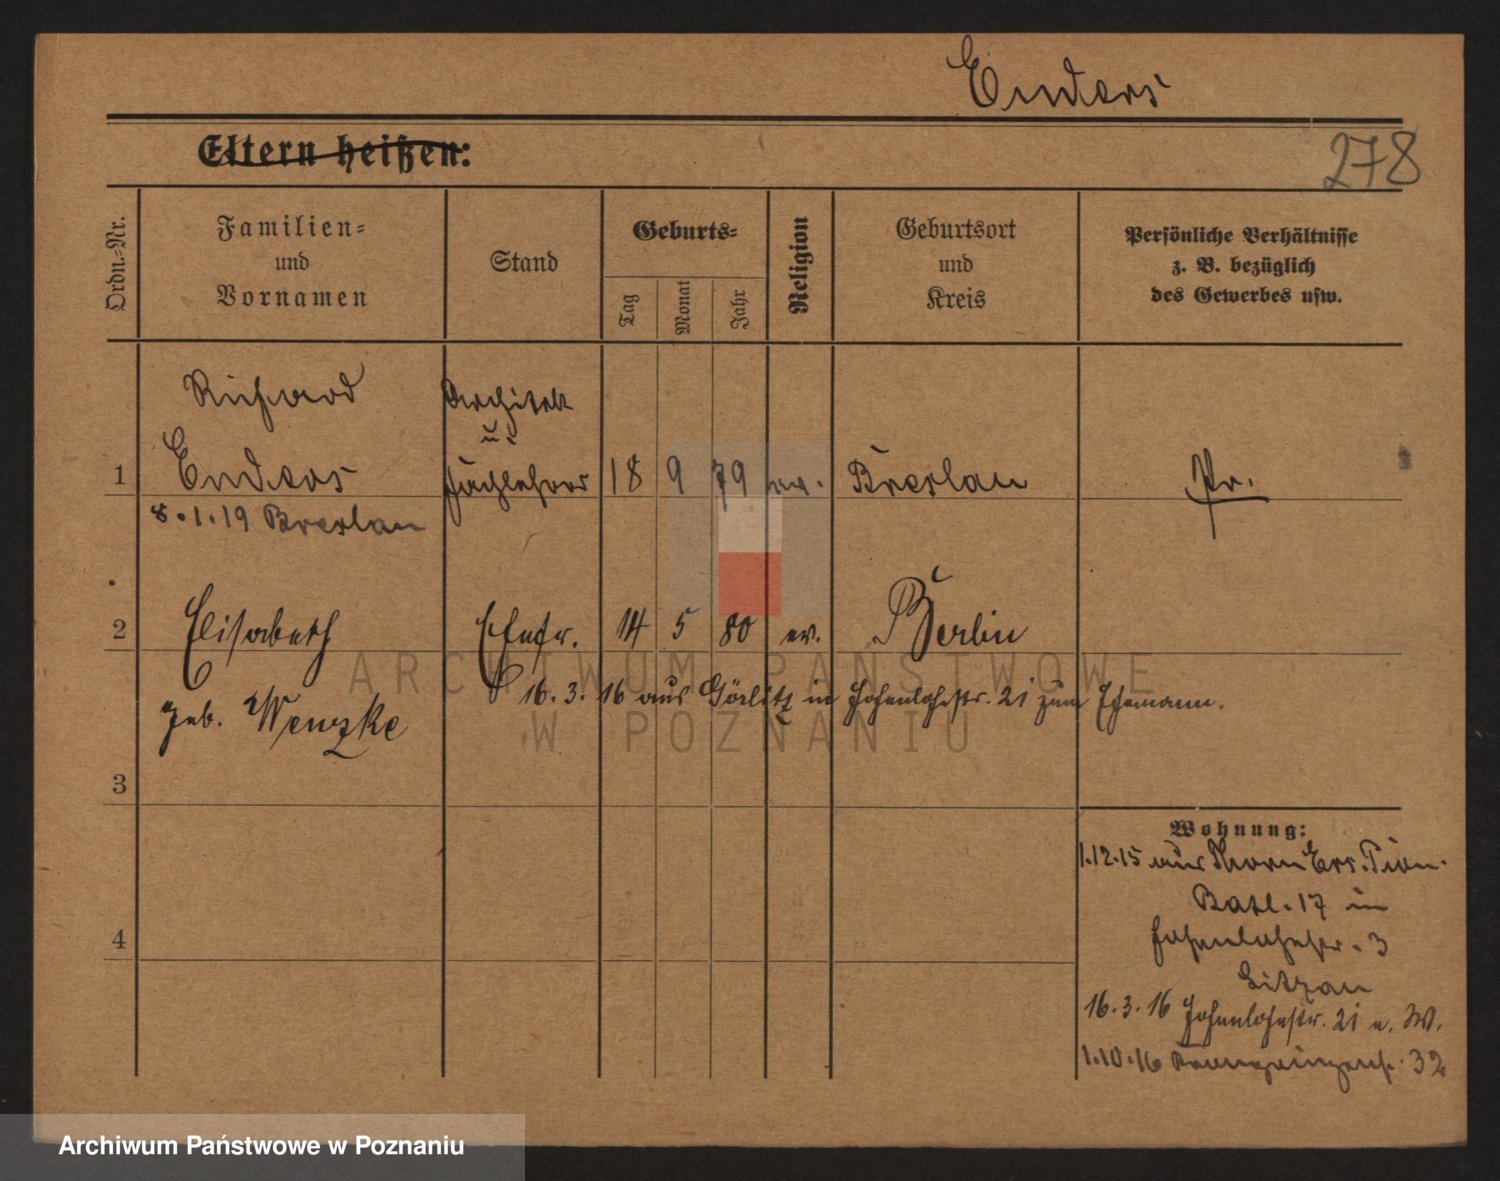 Enders
Eltern heißen:
278
Ordn.-Nr.
Familien-
und
Vornamen
Stand
Geburts-
Tag
Monat
Jahr
Religion
Geburtsort
und
Kreis
Persönliche Verhältnisse
z. B. bezüglich
des Gewerbes usw.
Richard
Architekt
u.
1 Enders 18 9 79 ev. Breslau Pr.
8.1.19 Breslau
2 Elisabeth Ehefr. 14 5 80 ev. Berlin
16.3.16 aus Görlitz in Hohenlohestr. 21 zum Ehemann.
geb. Wenzke
3
Wohnung:
1.12.15 aus Thorn Ers. Pion.
Batl. 17 in
Hohenlohestr. 3
4
16.3.16 Hohenlohestr. 21 n. W.
1.10.16 Kronprinzenstr. 32
ARCHIWUM PAŃSTWOWE
W POZNANIU
Archiwum Państwowe w Poznaniu